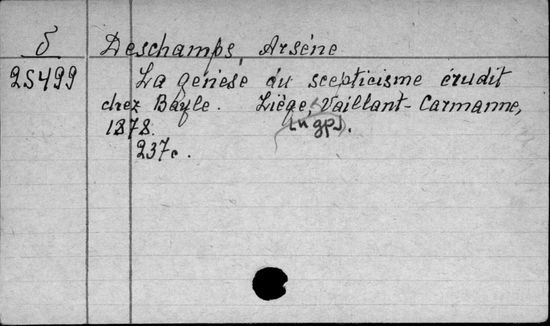 б Deschamps, Arsène
25499 La genèse du scepticisme érudit
chez Bayle. Liège, Vaillant-Carmanne,
1878. [и др].
237с.